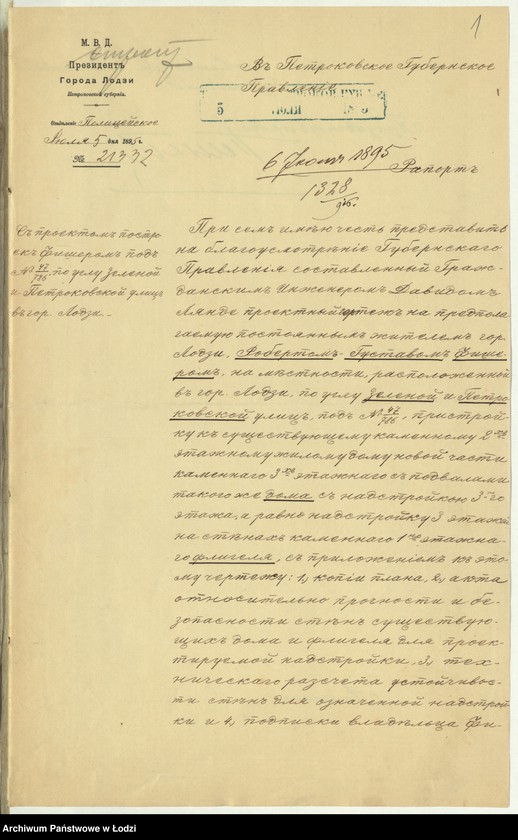 1
М. В. Д.
Президентъ
Города Лодзи
Петроковской губерніи.
Отдѣленіе Полицейское
Іюля 5 дня 1895 г.
№ 21332
Въ Петроковское Губернское
Правленіе
5 ІЮЛЯ 1895
6 Іюля 1895
1328
Рапортъ
Съ проектомъ постро-
екъ Фишеромъ подъ
№ 47/786 по углу Зеленой
и Петроковской улицъ
въ гор. Лодзи.
При семъ имѣю честь представить
на благоусмотрѣніе Губернскаго
Правленія составленный Граж-
данскимъ Инженеромъ Давидомъ
Лянде проектный чертежъ на предпола-
гаемую постояннымъ жителемъ гор.
Лодзи, Робертомъ-Густавомъ Фише-
ромъ, на мѣстности, расположенной
въ гор. Лодзи, по углу Зеленой и Петро-
ковской улицъ, подъ № 47/786, пристрой-
ку къ существующему каменному 2хъ
этажному жилому дому новой части
каменнаго 3хъ этажнаго съ подвалами
такого же дома съ надстройкою 3-го
этажа, а равно надстройку 3 этажа
на стѣнахъ каменнаго 1го этажна-
го флигеля, съ приложеніемъ къ это-
му чертежу: 1, копіи плана, 2, акта
относительно прочности и бе-
зопасности стѣнъ существую-
щихъ дома и флигеля для проек-
тируемой надстройки, 3, тех-
ническаго разсчета устойчивос-
ти стѣнъ для означенной надстрой-
ки и 4, подписки владѣльца Фи-
Archiwum Państwowe w Łodzi